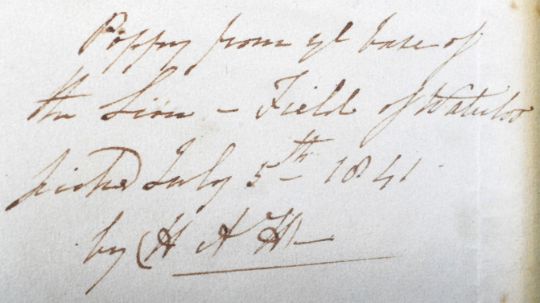 Poppy from ye base of
the Lion – Field of Waterloo
picked July 5th 1841
by H A H